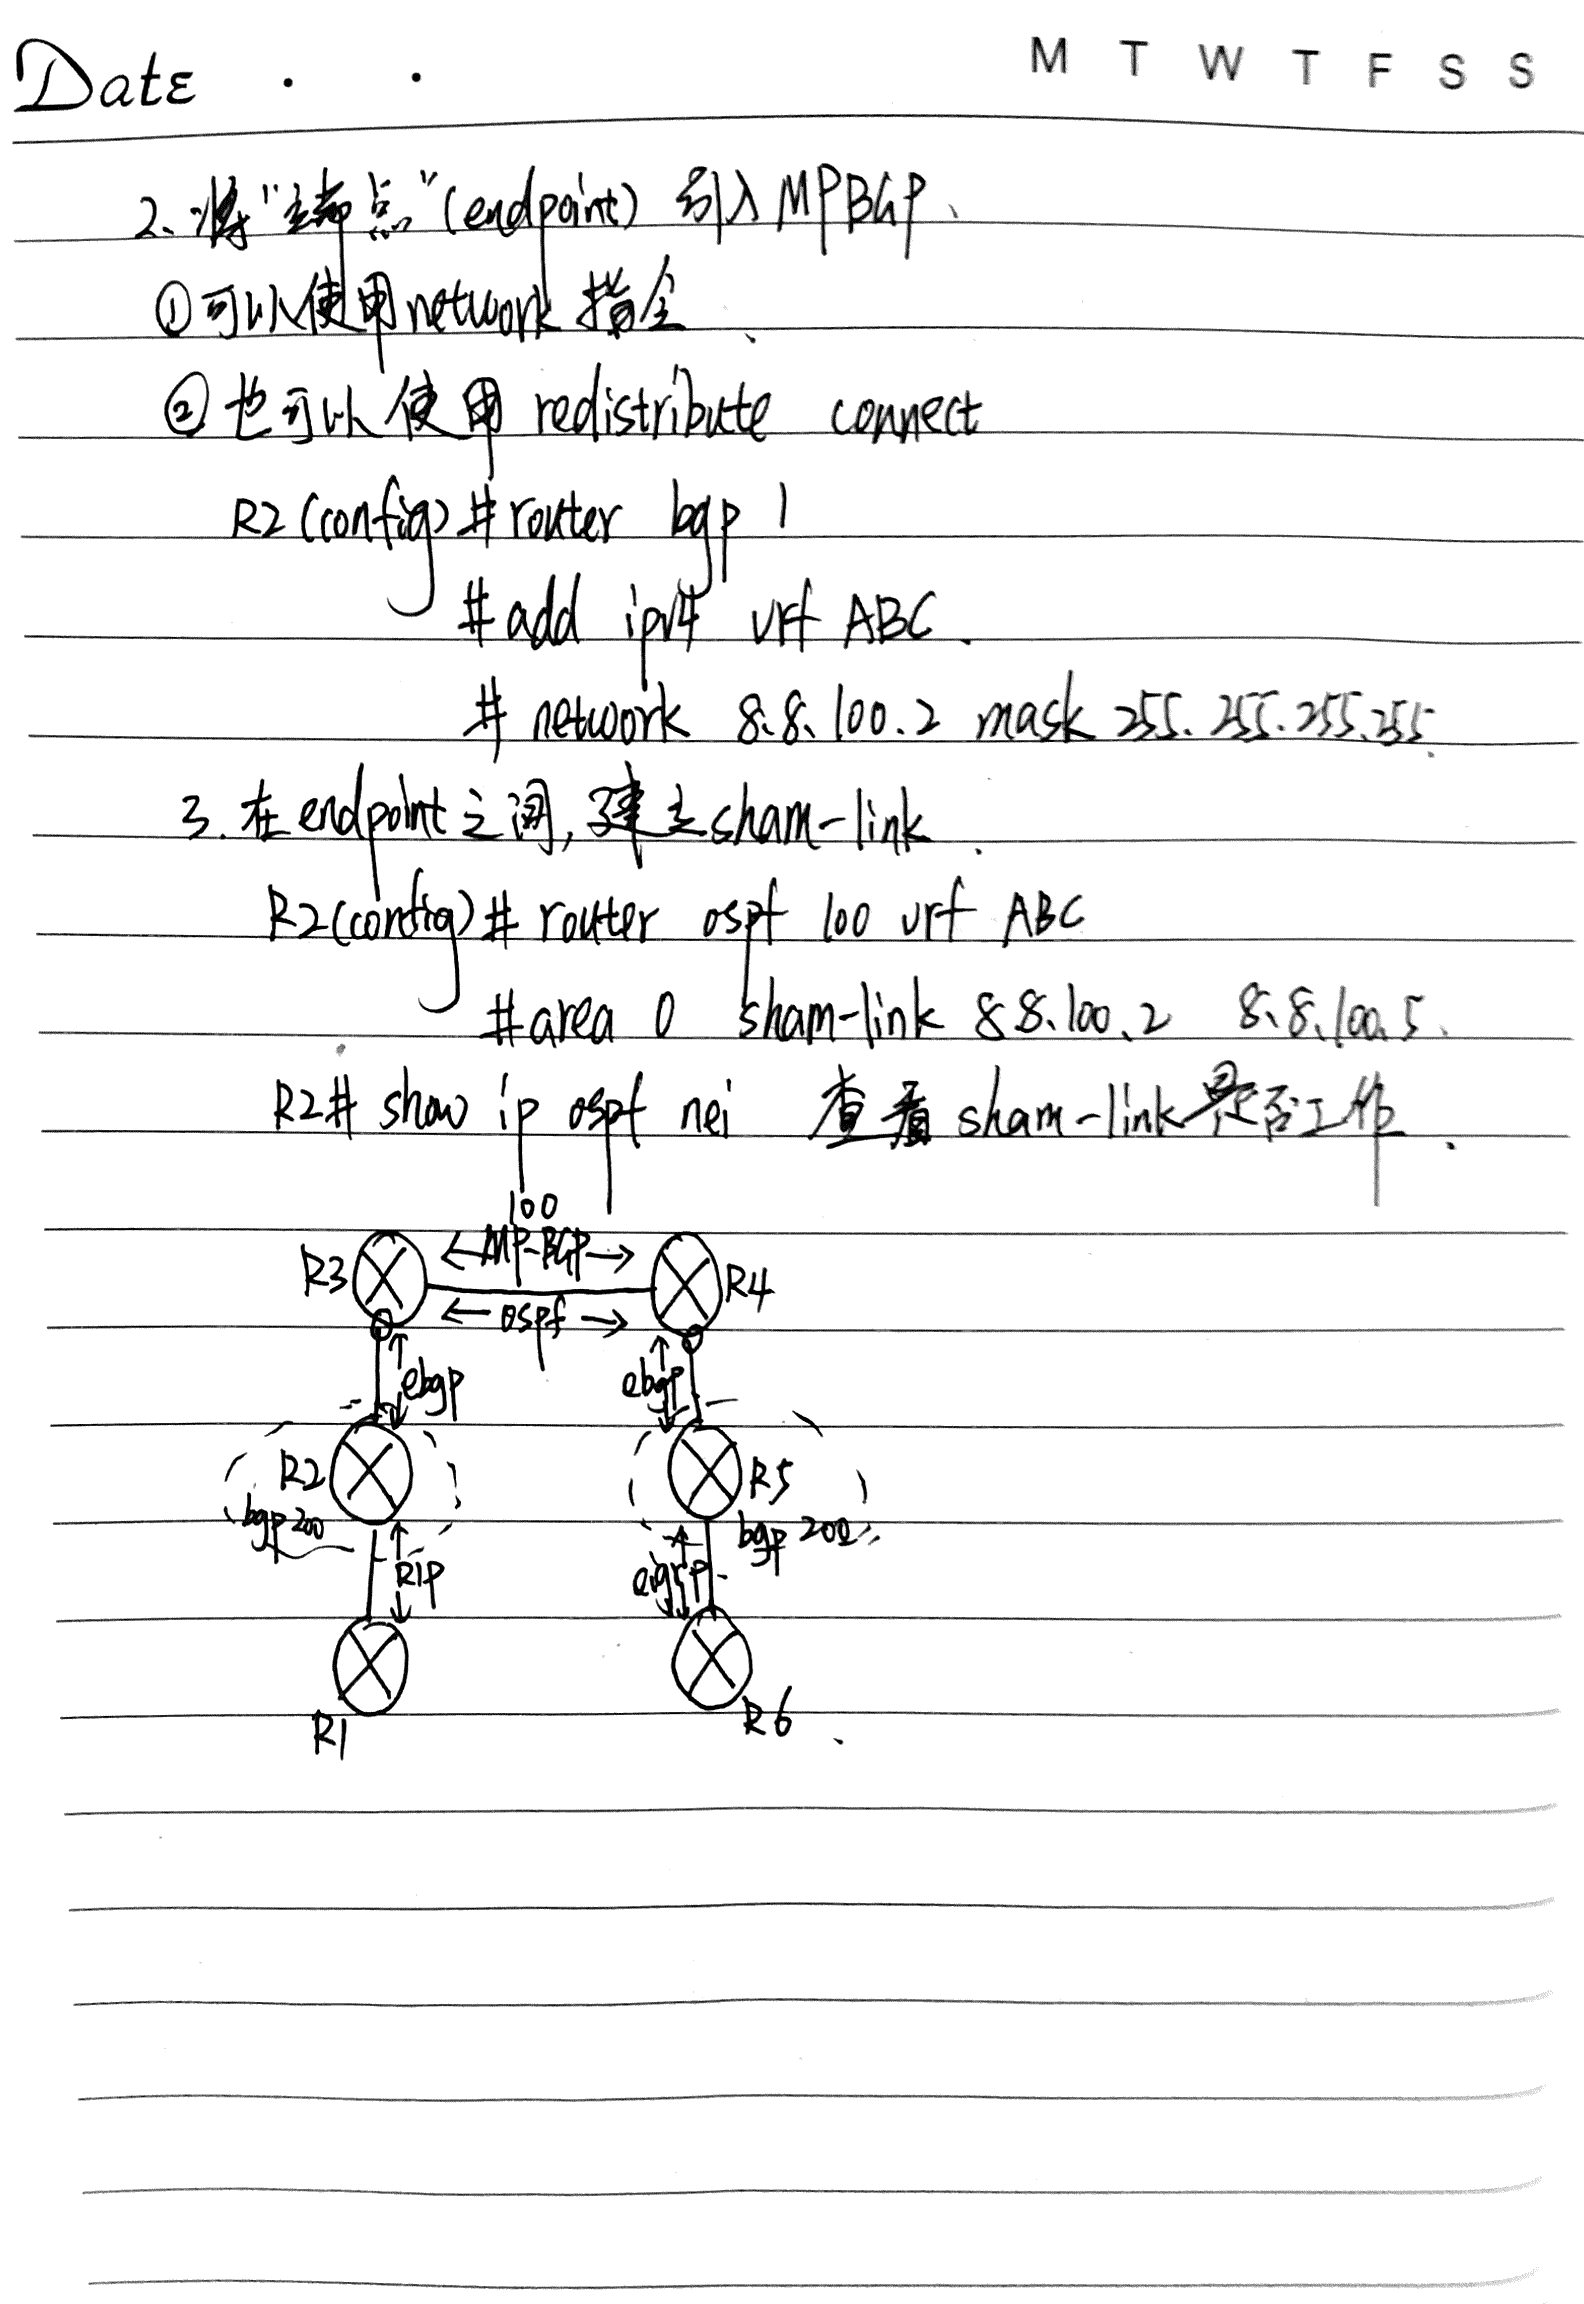 Date . . M T W T F S S
2、将"端点"(endpoint) 引入 MPBGP、
①可以使用network 指令
②也可以使用 redistribute connect
R2(config)#router bgp 1
#add ipv4 vrf ABC.
# network 8.8.100.2 mask 255.255.255.255.
3. 在endpoint之间,建立sham-link.
R2(config)# router ospf 100 vrf ABC
#area 0 sham-link 8.8.100.2 8.8.100.5.
R2# show ip ospf nei 查看 sham-link是否工作.
100
R3 <-MP-BGP-> R4
<- ospf ->
ebgp ebgp
R2 R5
bgp 200 bgp 200
RIP eigrp
R1 R6